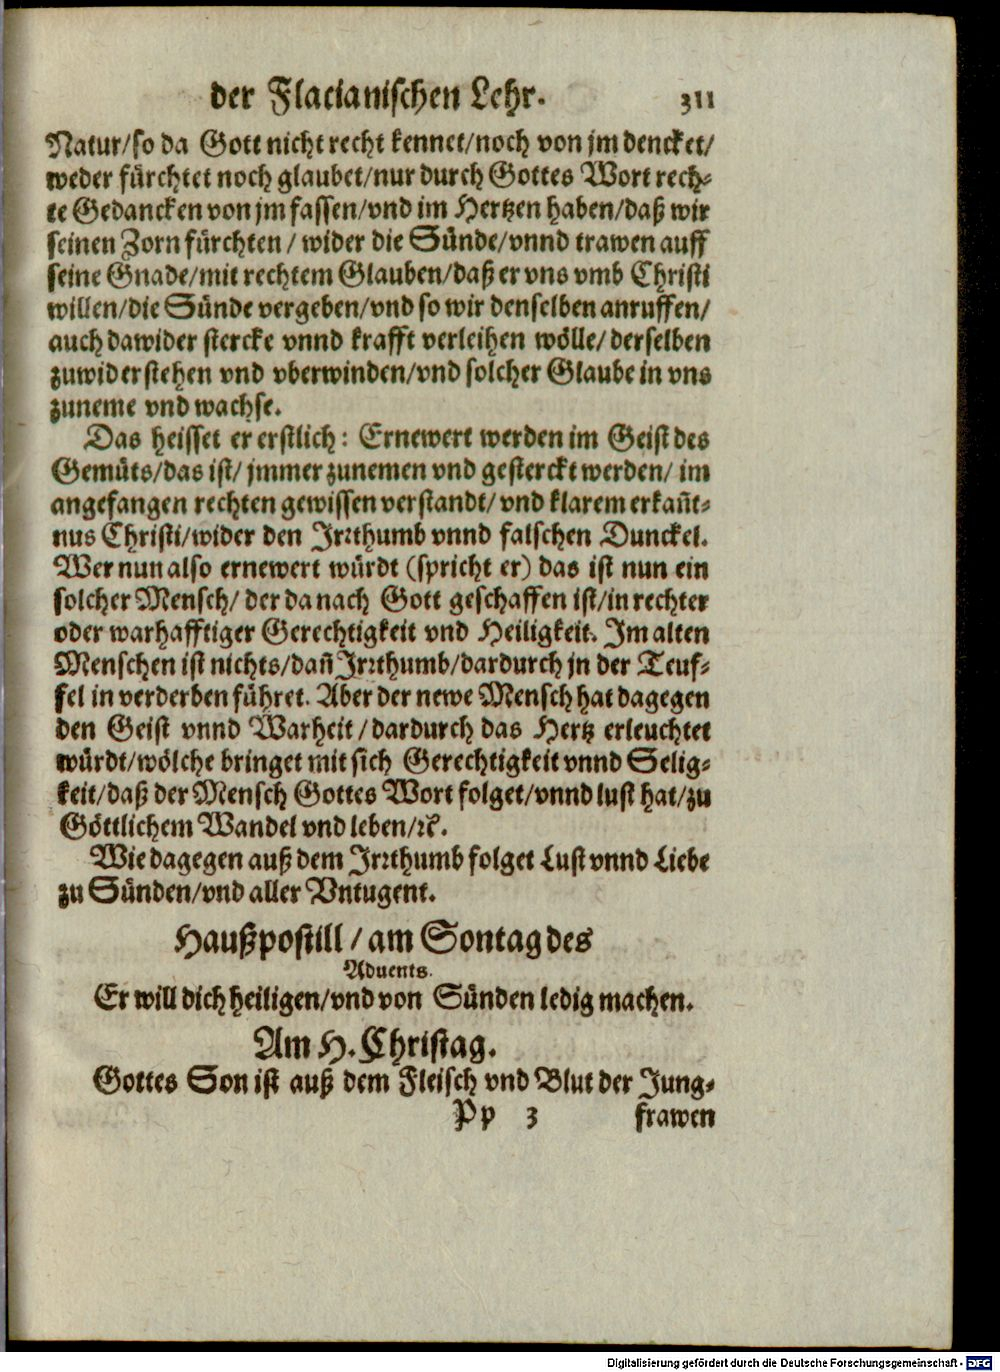 der Flacianischen Lehr. 311
Natur/so da Gott nicht recht kennet/noch von jm dencket/
weder fürchtet noch glaubet/nur durch Gottes Wort rech-
te Gedancken von jm fassen/vnd im Hertzen haben/daß wir
seinen Zorn fürchten / wider die Sünde/vnnd trawen auff
seine Gnade/mit rechtem Glauben/daß er vns vmb Christi
willen/die Sünde vergeben/vnd so wir denselben anruffen/
auch dawider stercke vnnd krafft verleihen wölle/ derselben
zuwiderstehen vnd vberwinden/vnd solcher Glaube in vns
zuneme vnd wachse.
Das heisset er erstlich: Ernewert werden im Geist des
Gemüts/das ist/ jmmer zunemen vnd gesterckt werden/ im
angefangen rechten gewissen verstandt/ vnd klarem erkañt-
nus Christi/wider den Jrꝛthumb vnnd falschen Dunckel.
Wer nun also ernewert würdt (spricht er) das ist nun ein
solcher Mensch/ der da nach Gott geschaffen ist/in rechter
oder warhafftiger Gerechtigkeit vnd Heiligkeit. Jm alten
Menschen ist nichts/dañ Jrꝛthumb/dardurch jn der Teuf-
fel in verderben führet. Aber der newe Mensch hat dagegen
den Geist vnnd Warheit / dardurch das Hertz erleuchtet
würdt/wölche bringet mit sich Gerechtigkeit vnnd Selig-
keit/daß der Mensch Gottes Wort folget/vnnd lust hat/zu
Göttlichem Wandel vnd leben/ꝛc.
Wie dagegen auß dem Jrꝛthumb folget Lust vnnd Liebe
zu Sünden/vnd aller Vntugent.
Haußpostill / am Sontag des
Aduents.
Er will dich heiligen/vnd von Sünden ledig machen.
Am H. Christag.
Gottes Son ist auß dem Fleisch vnd Blut der Jung-
Pp 3 frawen
Digitalisierung gefördert durch die Deutsche Forschungsgemeinschaft - DFG